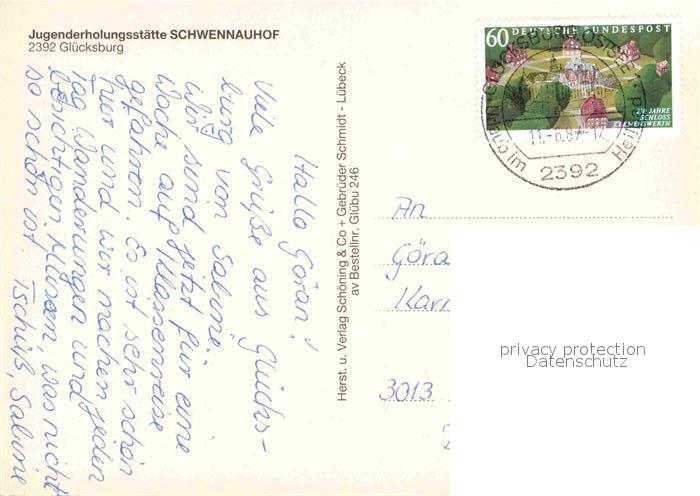 Jugenderholungsstätte SCHWENNAUHOF
2392 Glücksburg
Hallo Göran!
Viele Grüße aus Glücks-
burg von Sabine.
Wir sind jetzt für eine
Woche auf Klassenreise
gefahren. Es ist sehr schön
hier und wir machen jeden
Tag Wanderungen und
besichtigen Museen, was nicht
so schön ist.
Tschüß, Sabine
Herst. u. Verlag Schöning & Co + Gebrüder Schmidt - Lübeck
av Bestellnr. Glübu 246
60 DEUTSCHE BUNDESPOST
250 JAHRE
SCHLOSS
CLEMENSWERTH
GLÜCKSBURG, OSTSEE
Urlaub im Heil
2392
An
Göra
Karr
3013
privacy protection
Datenschutz